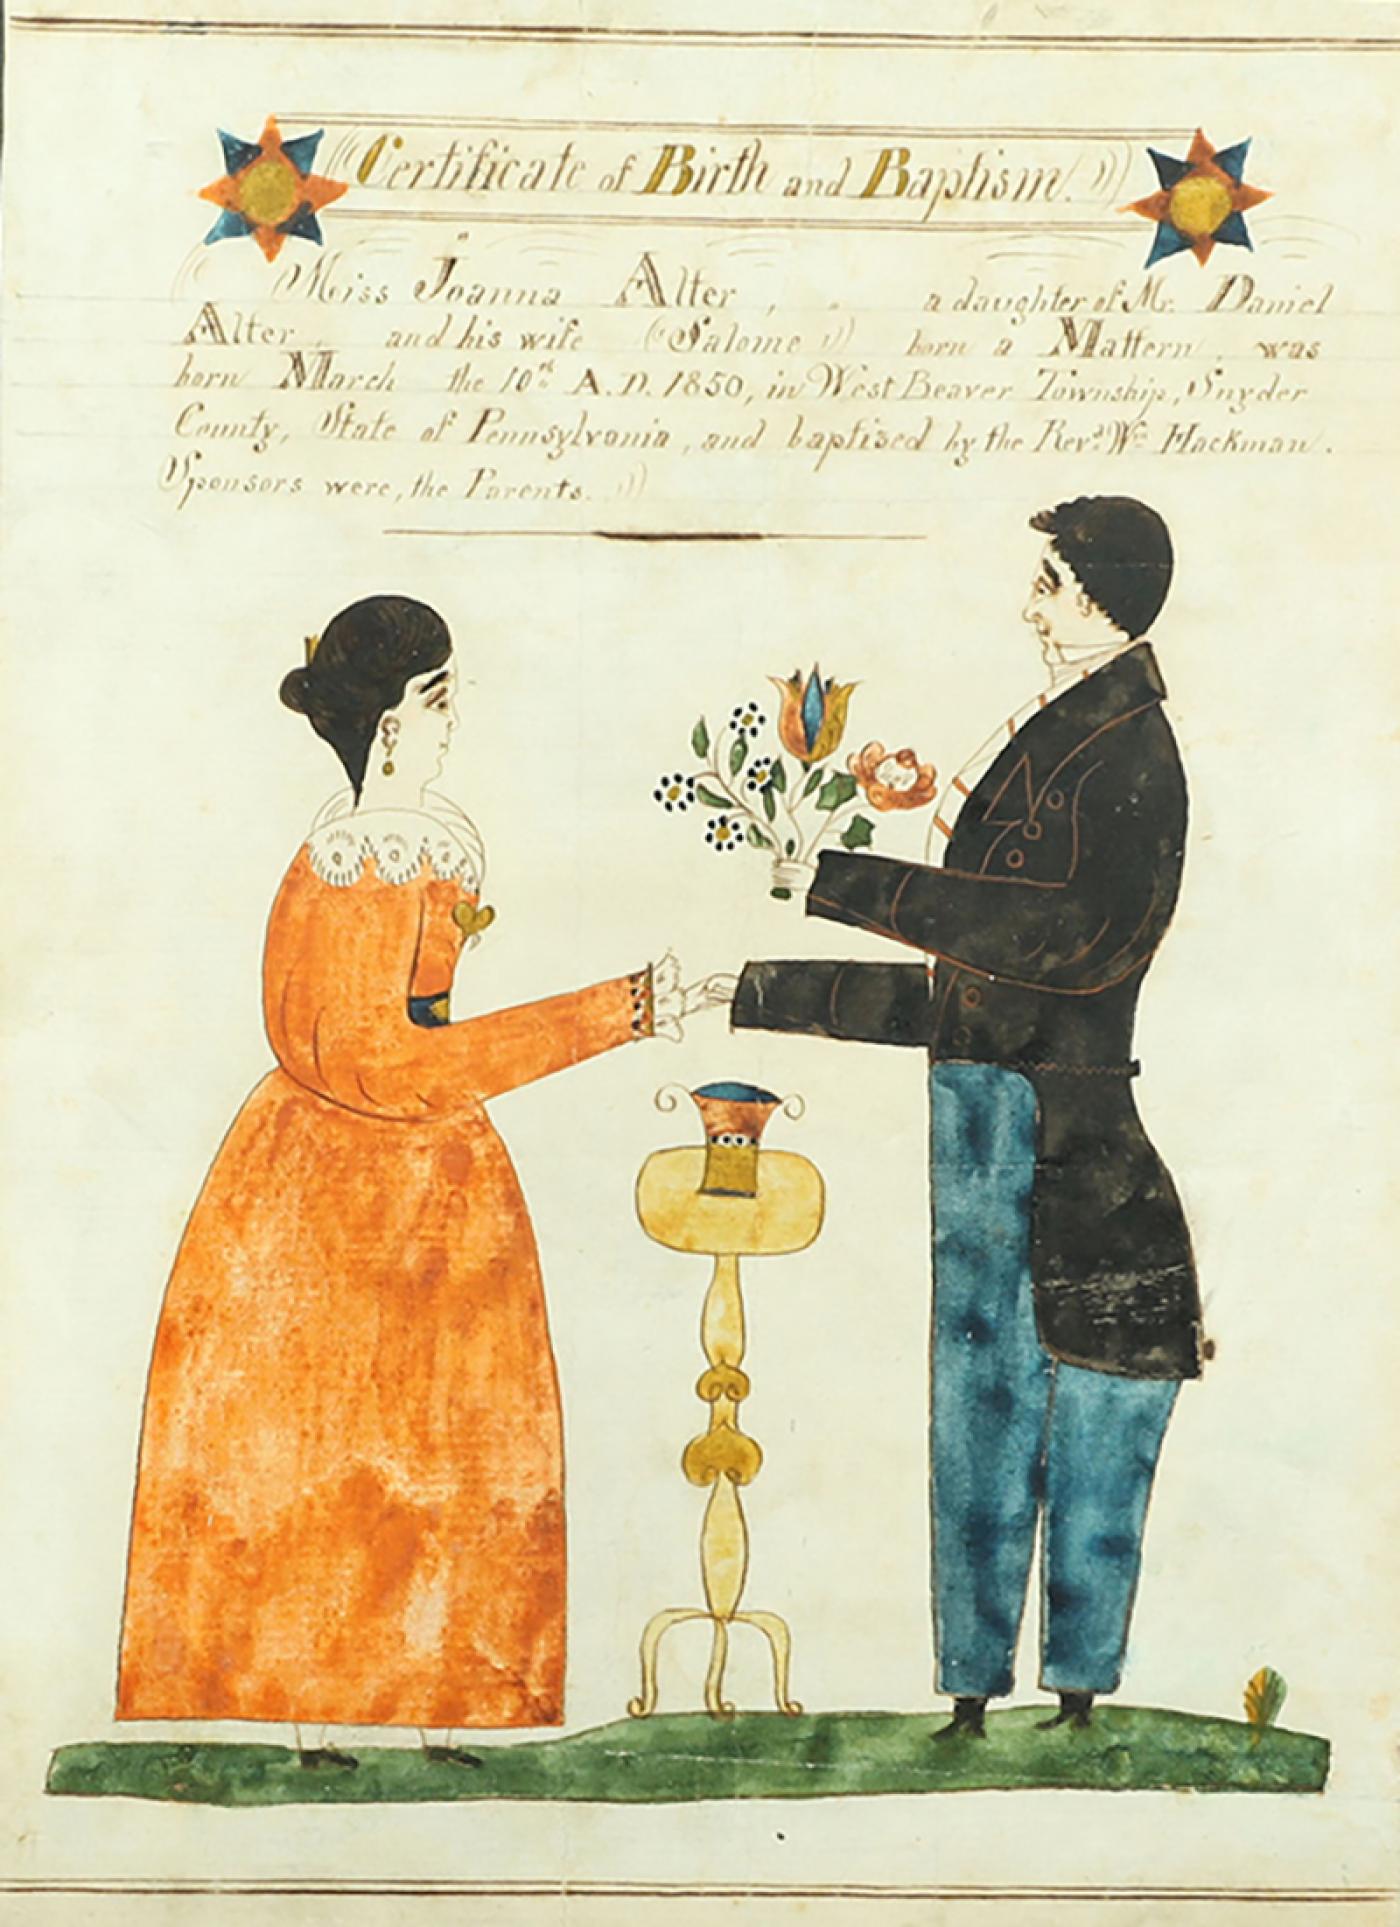 Certificate of Birth and Baptism.
Miss Joanna Alter, a daughter of Mr. Daniel
Alter, and his wife (Salome) born a Mattern, was
born March the 10th A.D. 1850, in West Beaver Township, Snyder
County, State of Pennsylvania, and baptised by the Revd. Wm Hackman.
Sponsors were, the Parents.